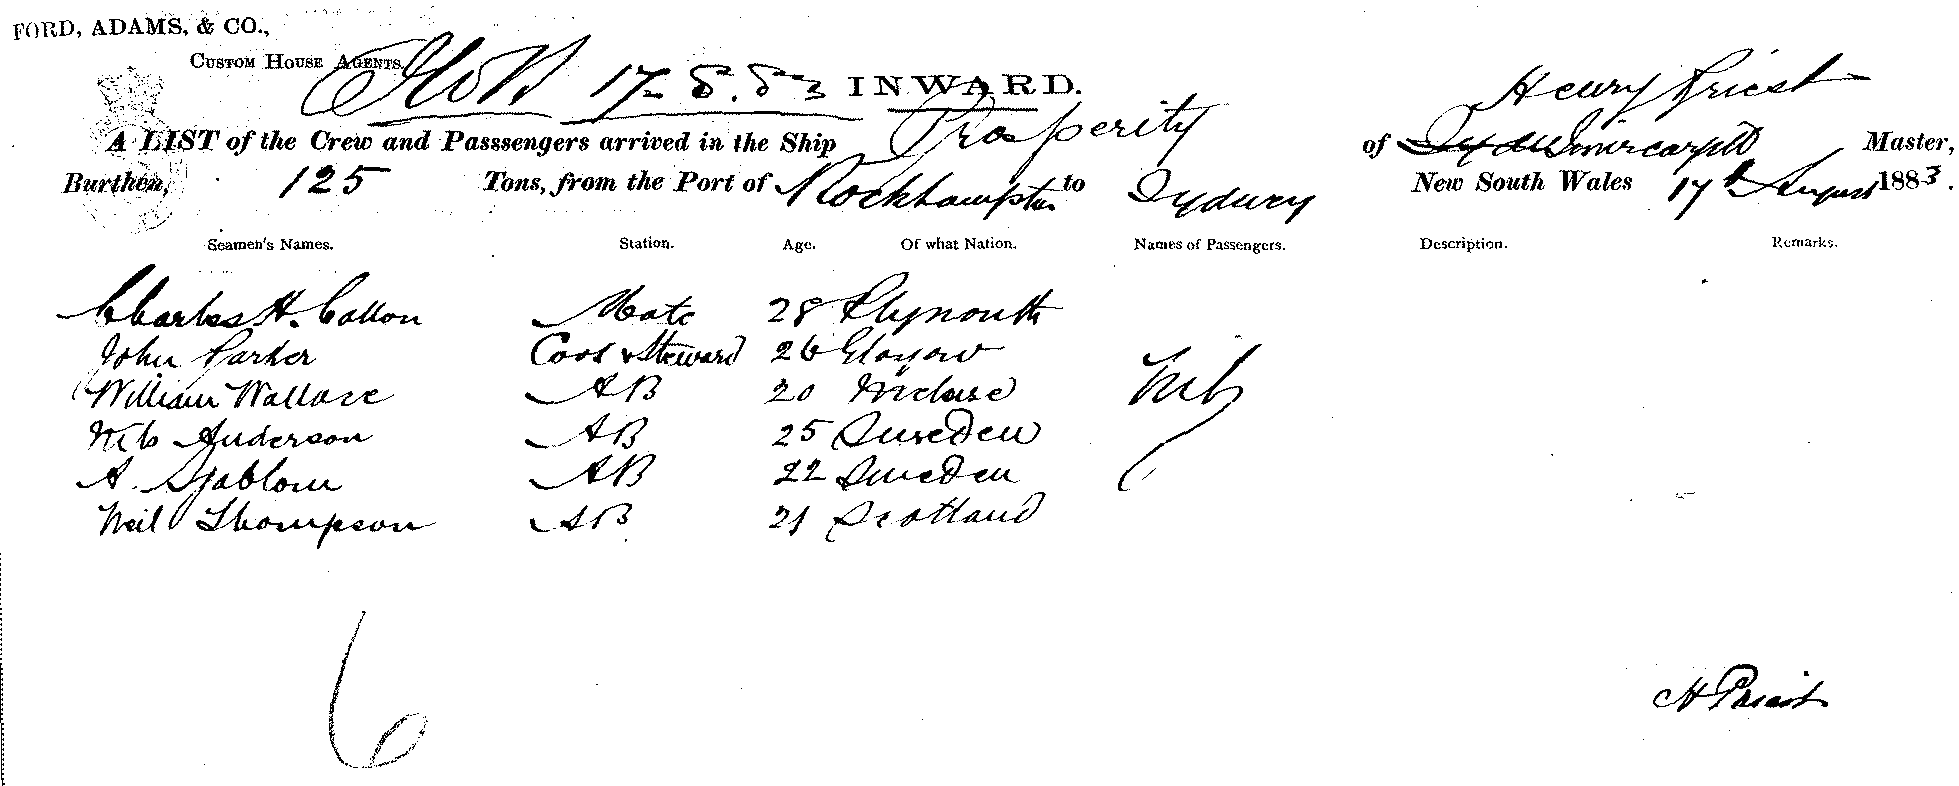 FORD, ADAMS, & CO.,
CUSTOM HOUSE AGENTS.
17-8.83 INWARD.
Henry Priest
A LIST of the Crew and Passsengers arrived in the Ship Prosperity of Master,
Burthen, 125 Tons, from the Port of Rockhampton to Sydney New South Wales 17th August 1883.
Seamen's Names. Station. Age. Of what Nation. Names of Passengers. Description. Remarks.
Charles H. Mate 28 Plymouth
John Parker Cook & Steward 26 Glasgow
William Wallace AB 20
Nils Anderson AB 25 Sweden
A. Sjablom AB 22 Sweden
Neil Thompson AB 21 Scotland
Nil
6
H Priest